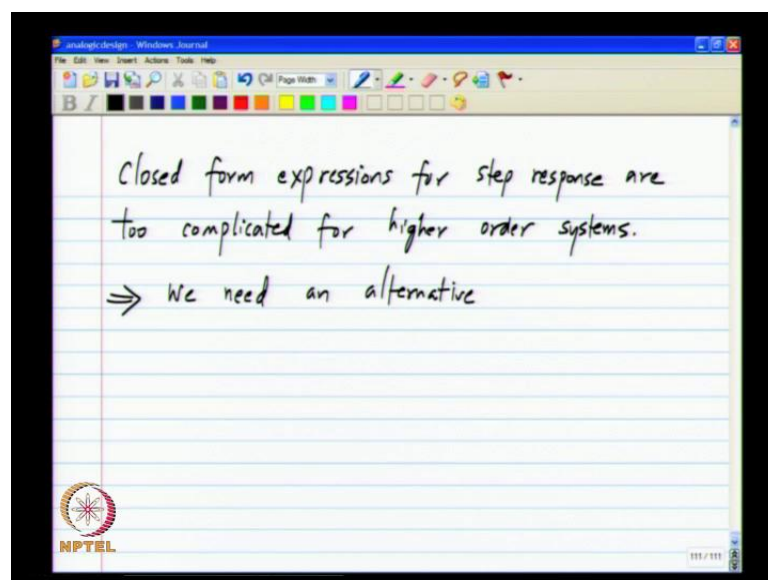 analogicdesign - Windows Journal
File Edit View Insert Actions Tools Help
Page Width
B I
Closed form expressions for step response are
too complicated for higher order systems.
⇒ We need an alternative
NPTEL
111 / 111